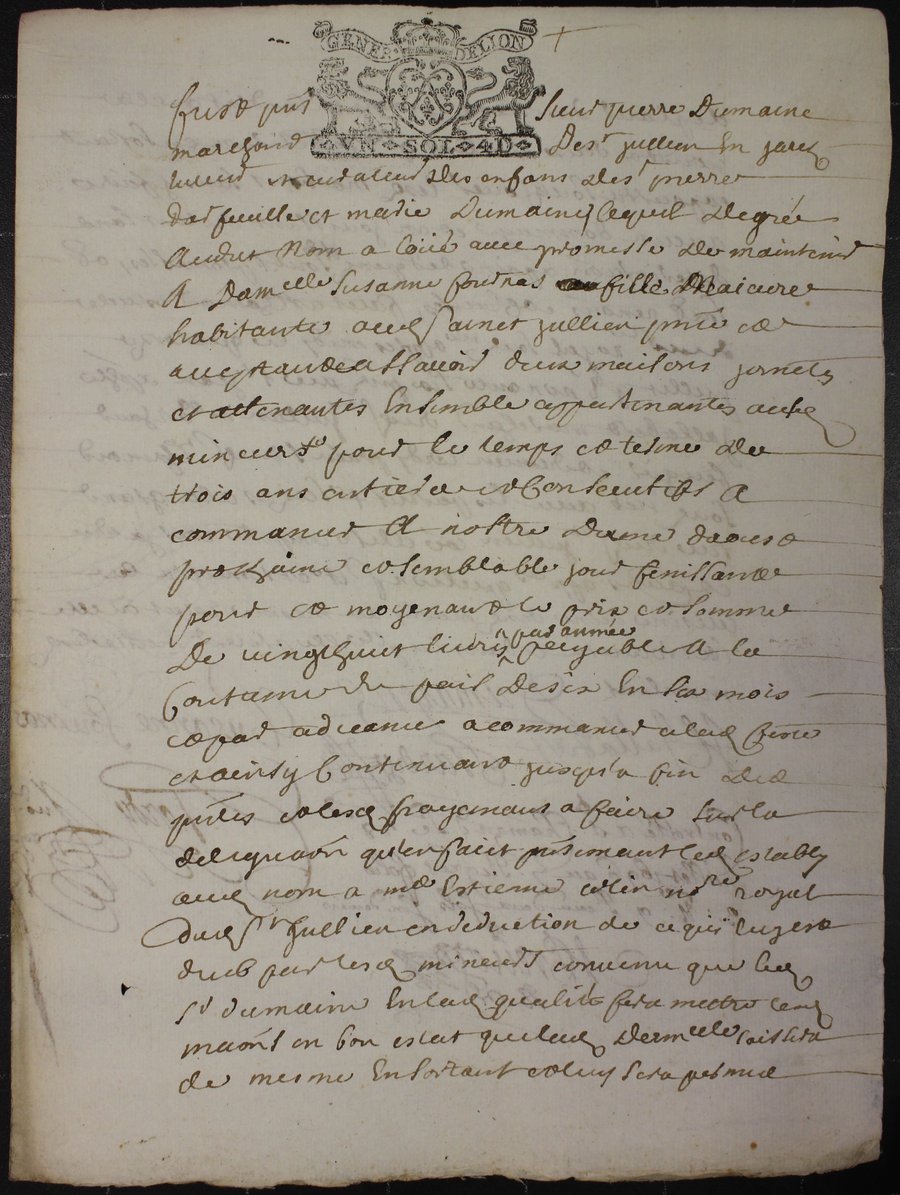 GENER DELION
VN SOL 4D
fust pnt sieur pierre Dumaine
marchand De st Jullien En Jarez
tuteur et curateur des enfans de st pierre
dorfeuille et marie Dumaine lequel de gré
Audit Nom a loué avec promesse de maintenir
A Damelle Susanne fournas fille Majeure
habitante aud sainct Jullien pnte et
acceptante assavoir deux maisons joinctes
et attenantes Ensemble appartenantes ausd
mineurs pour le temps et terme de
trois ans entiers et Consecutifs A
commancer A nostre Dame daoust
prochaine et semblable jour finissant
pour et moyenant le prix et somme
De vingthuit livres par année payable A la
Coutume du pais De six En six mois
et par advance a commancer alad feste
et ainsy Continuant jusqu'a fin des
pntes et lesd payemens a faire sur la
delegaon qu'en fait pntement led estably
aud nom a me Estienne colin nore royal
dud st Jullien en deduction de ce qui luy est
dub par lesd mineurs convenu que led
sr dumaine En lad qualité fera mettre lesd
maons en bon estat que lad damelle laissera
de mesme En sortant et luy sera permis